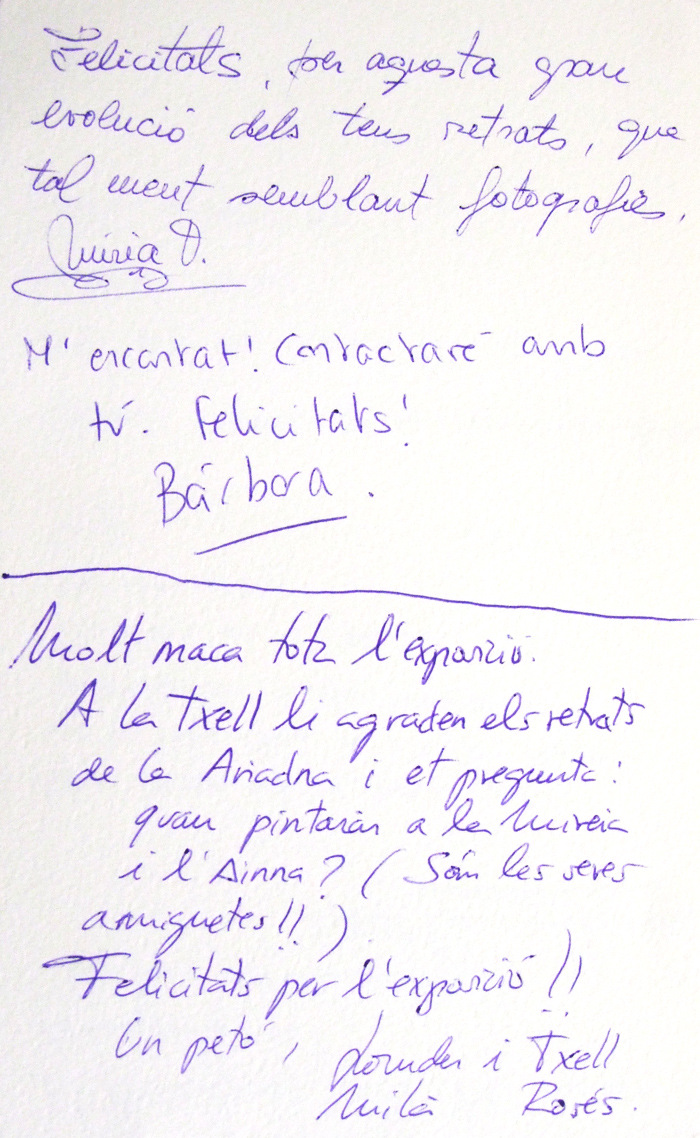 Felicitats, per aquesta gran
evolució dels teus retrats, que
tal ment semblant fotografies.
Núria D.
M'encantat! Contactaré amb
tú. Felicitats!
Bárbara.
Molt maca tota l'exposició.
A la Txell li agraden els retrats
de la Ariadna i et pregunta:
quan pintaràs a la Mireia
i l'Ainna? (Són les seves
amiguetes!!)
Felicitats per l'exposició!!
Un petó, Lourdes i Txell
Milà Rosés.